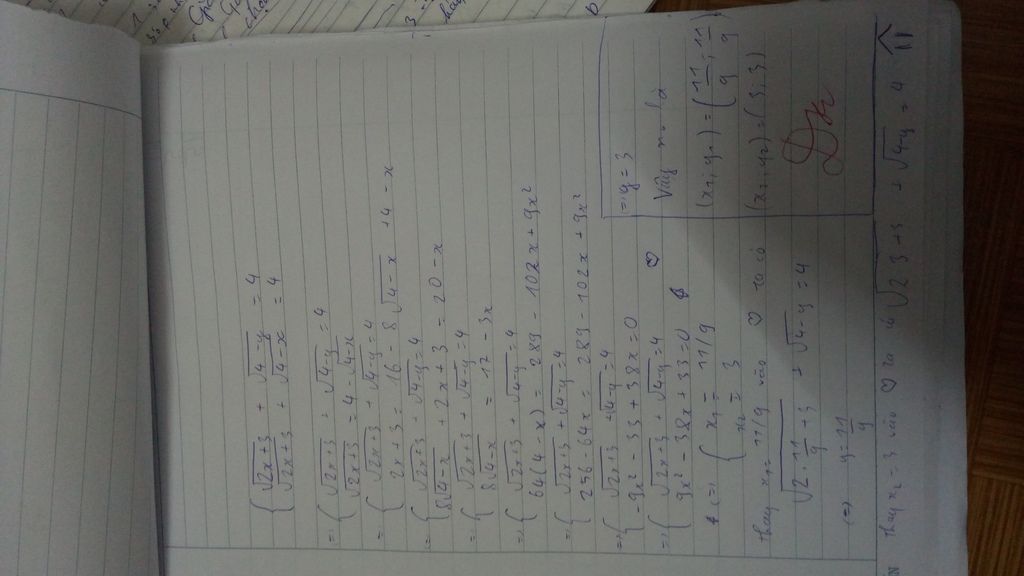 { √2x+3 + √4-y = 4
√2x+3 + √4-x = 4
=> { √2x+3 + √4-y = 4
√2x+3 = 4 - √4-x
= { √2x+3 + √4-y = 4
2x+3 = 16 - 8√4-x + 4 - x
=> { √2x+3 + √4-y = 4
8√4-x + 2x + 3 = 20 - x
=> { √2x+3 + √4-y = 4
8√4-x = 17 - 3x
=> { √2x+3 + √4-y = 4
64(4-x) = 289 - 102x + 9x²
=> { √2x+3 + √4-y = 4
256 - 64x = 289 - 102x + 9x²
=> { √2x+3 + √4-y = 4
-9x² - 33 + 38x = 0
=> { √2x+3 + √4-y = 4 ♡
9x² - 38x + 33 = 0
<=> { x₁ = 11/9
x₂ = 3
thay x₁ = 11/9 vào ♡ ta có
√2·11/9+3 + √4-y = 4
<=> y = 11/9
thay x₂ = 3 vào ♡ ta có √2 3+3 + √4-y = 4
=> y = 3
Vậy n₀ là
(x₁; y₁) = (11/9; 11/9)
(x₂; y₂) = (3, 3)